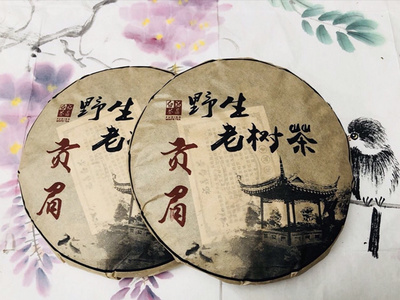 野生
老树茶
贡眉
野生
老树茶
贡眉